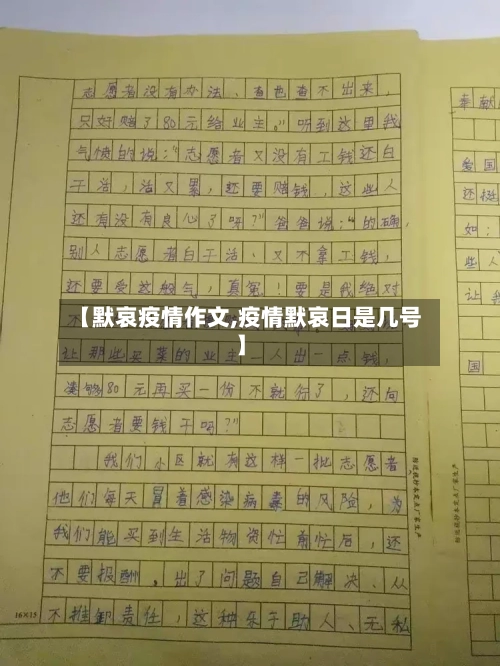 志愿者没有办法、查也查不出来,
只好赔了80元给业主。"听到这里我
气愤的说:"志愿者又没有工钱还白
干活,活又累,还要赔钱,这些人
还有没有良心了呀?"爸爸说:"的确,
别人志愿者白干活、又不拿工钱,
还要受这般气,真冤!要是我绝对
【默哀疫情作文,疫情默哀日是几号
】
让那些买菜的业主一人出一点钱,
凑够80元再买一份不就行了,还向
志愿者要钱干吗?"
我们小区就有这样一批志愿者
他们每天冒着感染病毒的风险,为
我们能买到生活物资忙前忙后,还
不要报酬。出了问题自己解决、从
不推卸责任,这种乐于助人、无私
16×15
奉献
爱国
还挺
如:
些人
让
国